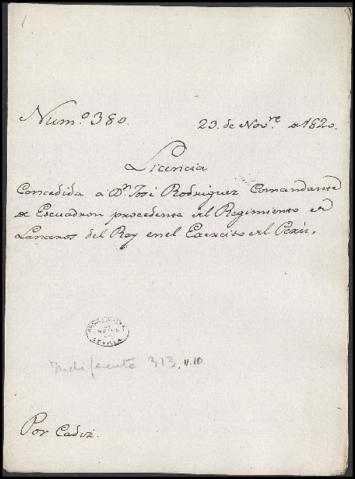 Num.º 380.
23. de Nov.re de 1820.
Licencia
Concedida a Dn. José Rodriguez Comandante
de Escuadron procedente del Regimiento de
Lanceros del Rey en el Exercito del Perú.
SEVILLA
Indiferente 313, N.10
Por Cadiz.